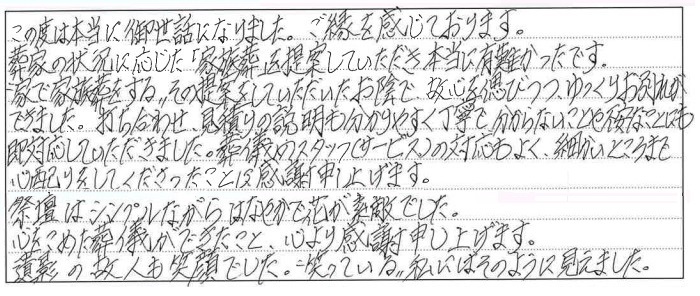 この度は本当に御世話になりました。ご縁を感じております。
葬家の状況に応じた「家族葬」を提案していただき本当に有難かったです。
"家で家族葬をする"その提案をしていただいたお陰で、故人を偲びつつ、ゆっくりお別れが
できました。打ち合わせ、見積りの説明も分かりやすく丁寧で分からないことや様々なことにも
即対応していただきました。葬儀のスタッフ(サービス)の対応もよく、細かいところまで
心配りをしてくださったことに感謝申し上げます。
祭壇はシンプルながらはなやかで花が素敵でした。
心をこめた葬儀ができたこと、心より感謝申し上げます。
遺影の故人も笑顔でした。"笑っている"私にはそのように見えました。